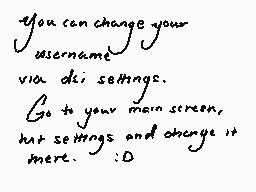 You can change your
username
via dsi settings.
Go to your main screen,
hit settings and change it
there. :D